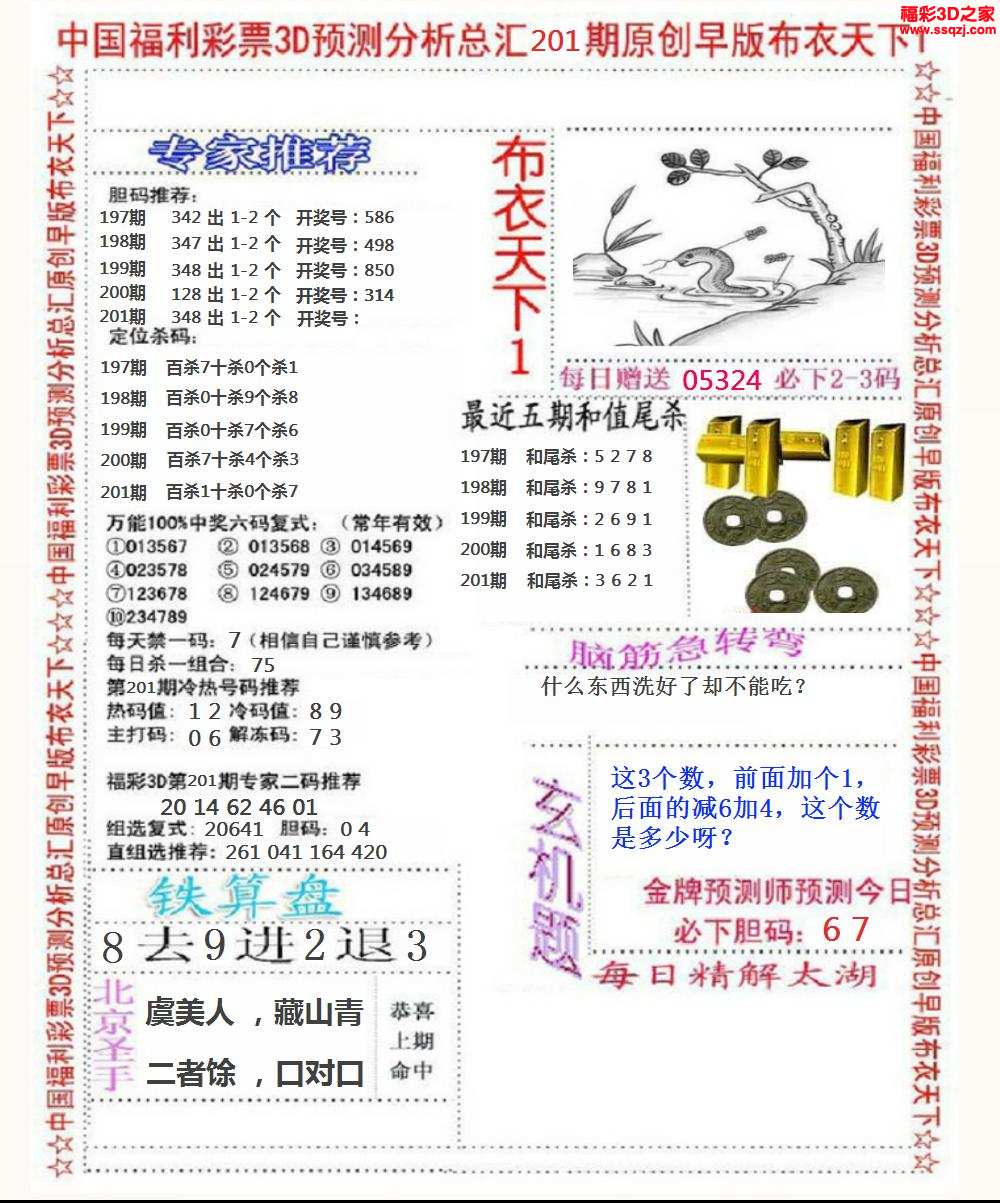 福彩3D之家
www.ssqzj.com
中国福利彩票3D预测分析总汇201期原创早版布衣天下1
☆☆中国福利彩票3D预测分析总汇原创早版布衣天下☆☆☆中国福利彩票3D预测分析总汇原创早版布衣天下☆☆
专家推荐
胆码推荐:
197期 342 出 1-2 个 开奖号：586
198期 347 出 1-2 个 开奖号：498
199期 348 出 1-2 个 开奖号：850
200期 128 出 1-2 个 开奖号：314
201期 348 出 1-2 个 开奖号：
定位杀码:
197期 百杀7十杀0个杀1
198期 百杀0十杀9个杀8
199期 百杀0十杀7个杀6
200期 百杀7十杀4个杀3
201期 百杀1十杀0个杀7
万能100%中奖六码复式：（常年有效）
①013567 ② 013568 ③ 014569
④023578 ⑤ 024579 ⑥ 034589
⑦123678 ⑧ 124679 ⑨ 134689
⑩234789
每天禁一码：7（相信自己谨慎参考）
每日杀一组合：75
第201期冷热号码推荐
热码值：1 2 冷码值：8 9
主打码：0 6 解冻码：7 3
福彩3D第201期专家二码推荐
20 14 62 46 01
组选复式：20641 胆码：0 4
直组选推荐：261 041 164 420
铁算盘
8去9进2退3
北京圣手
虞美人 ，藏山青
二者馀 ，口对口
恭喜
上期
命中
布衣天下1
每日赠送 05324 必下2-3码
最近五期和值尾杀
197期 和尾杀：5 2 7 8
198期 和尾杀：9 7 8 1
199期 和尾杀：2 6 9 1
200期 和尾杀：1 6 8 3
201期 和尾杀：3 6 2 1
脑筋急转弯
什么东西洗好了却不能吃?
玄机题
这3个数，前面加个1，
后面的减6加4，这个数
是多少呀?
金牌预测师预测今日
必下胆码：6 7
每日精解太湖
☆☆中国福利彩票3D预测分析总汇原创早版布衣天下☆☆☆中国福利彩票3D预测分析总汇原创早版布衣天下☆☆